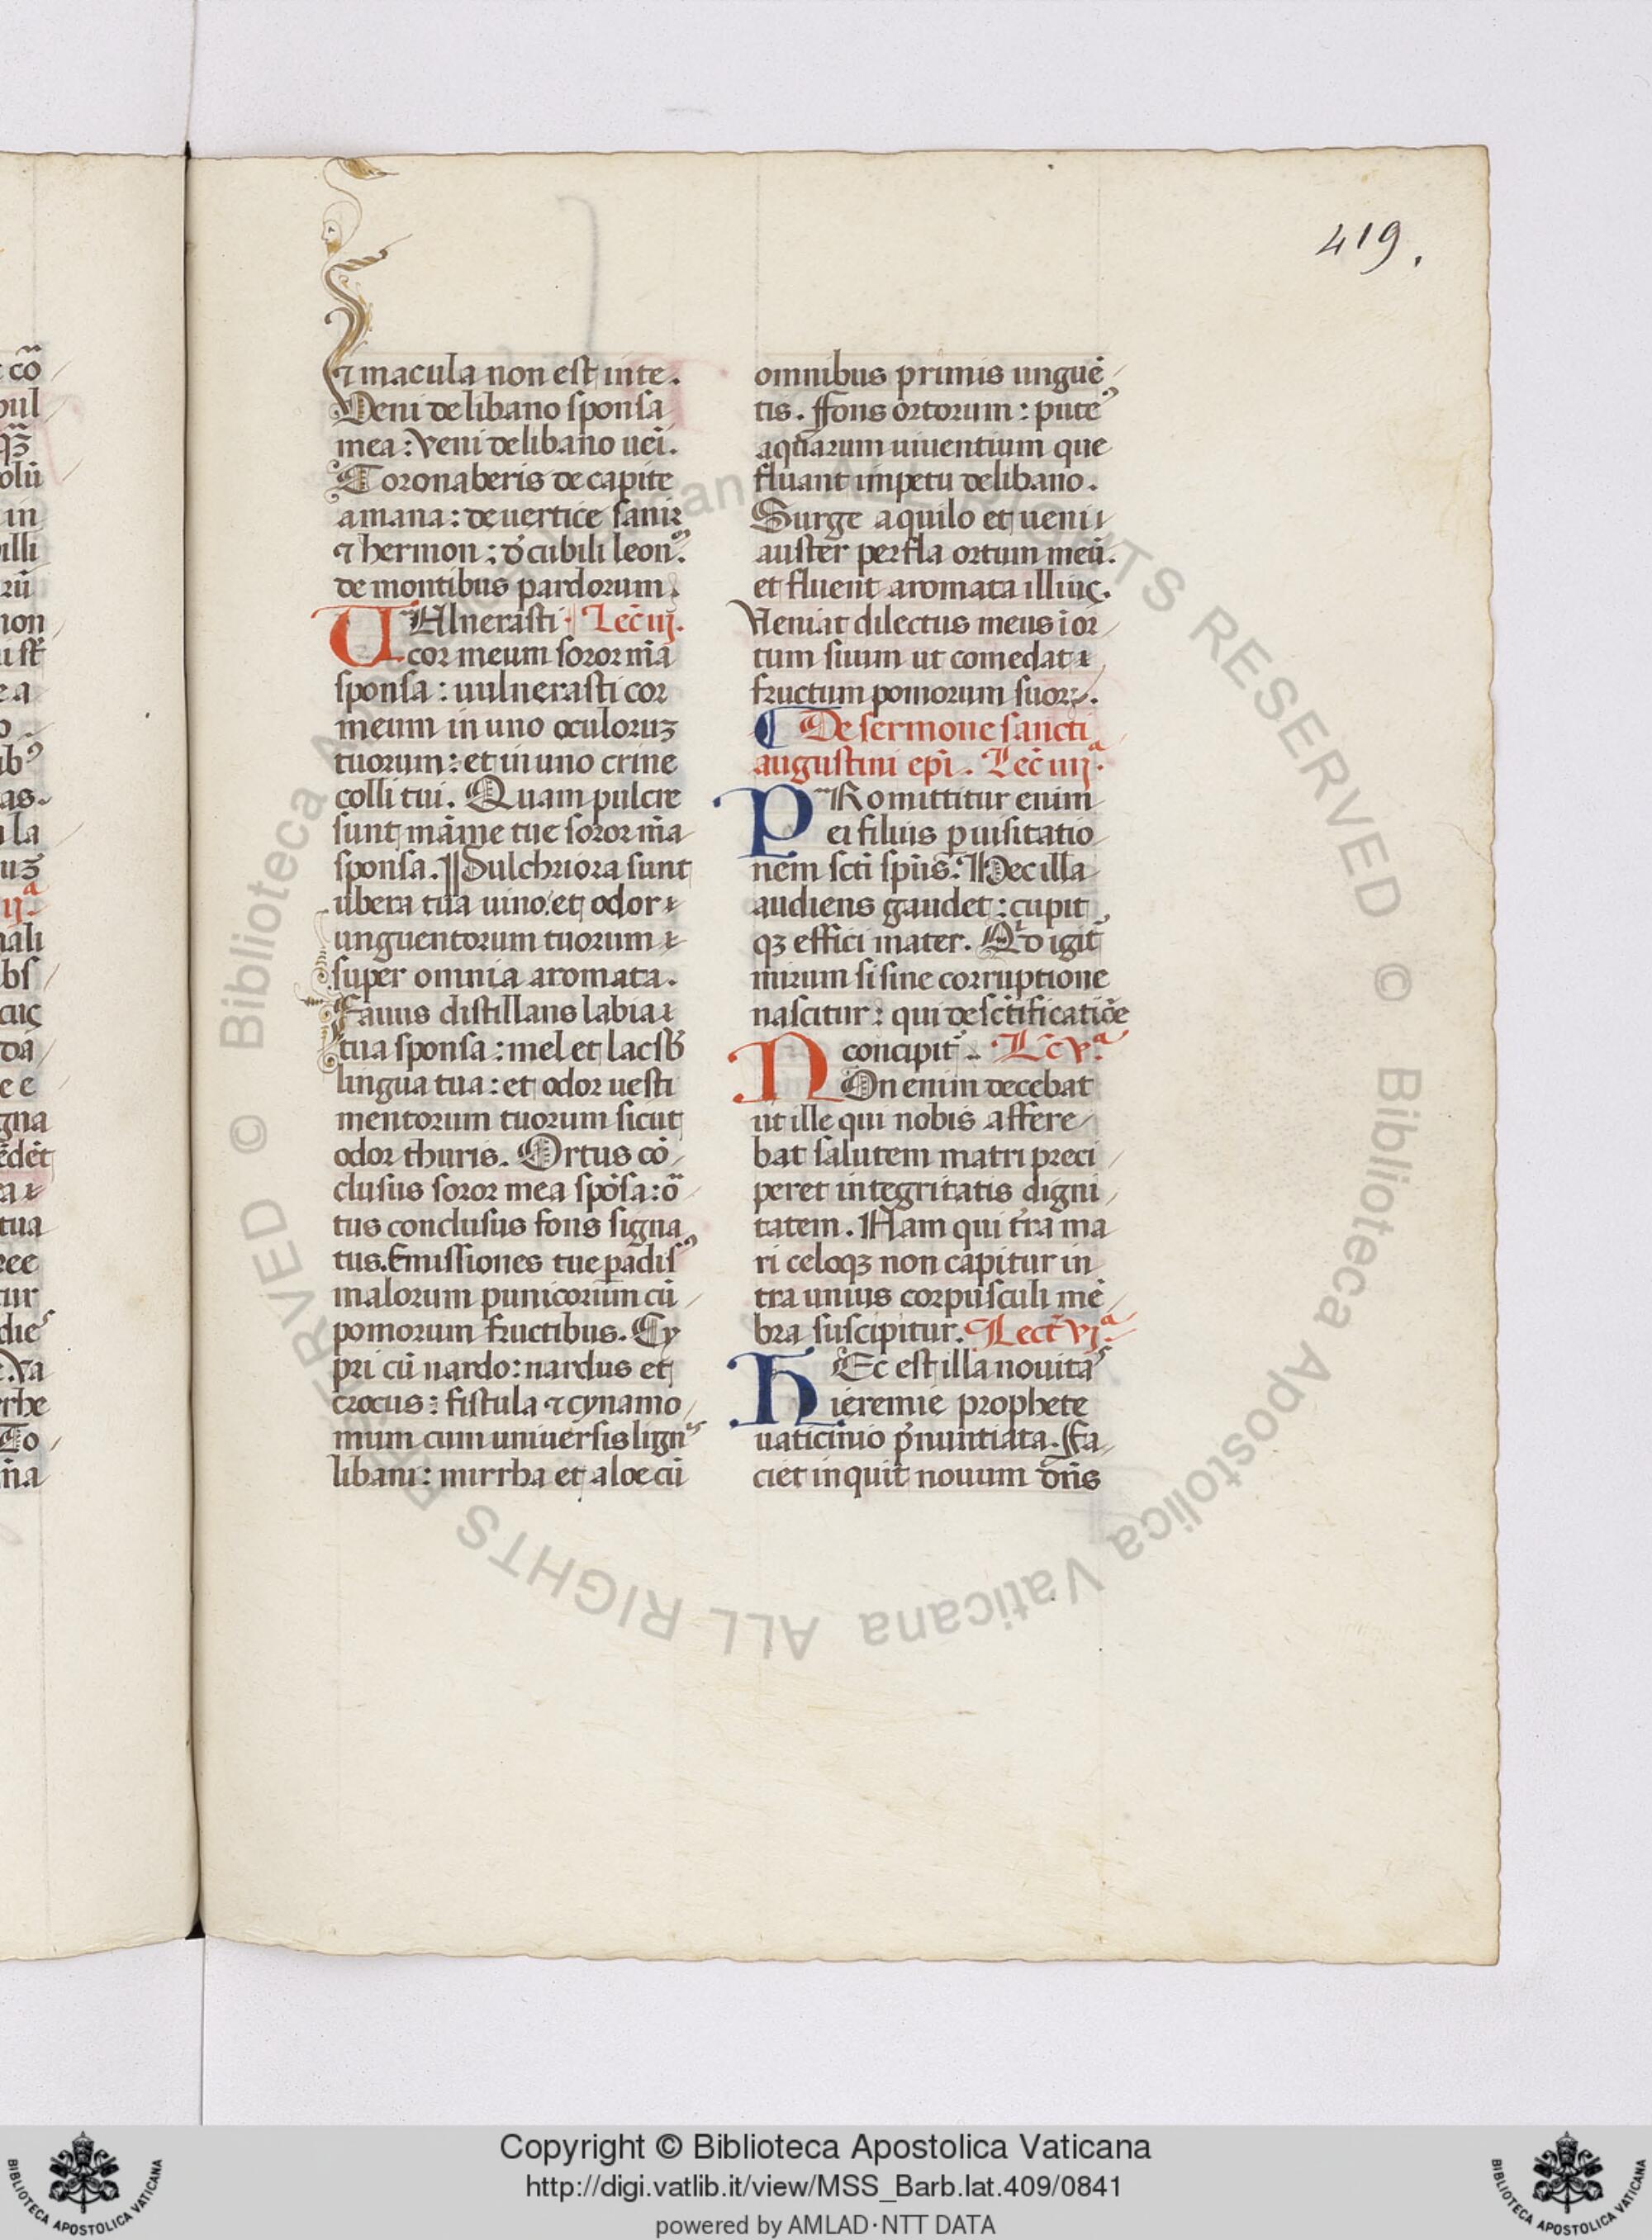 419.
⁊ macula non est in te.
Veni de libano sponsa
mea: veni de libano uēi.
Coronaberis de capite
amana: de uertice sanir
⁊ hermon: d̄ cubili leonꝰ.
de montibus pardorum.
VUlnerasti. Lec̄ iij.
cor meum soror m̄a
sponsa: uulnerasti cor
meum in uno oculoruꝫ
tuorum: et in uno crine
colli tui. Quam pulcre
sunt mām̄e tue soror m̄a
sponsa. Pulchriora sunt
ubera tua uino: et odor
unguentorum tuorum
super omnia aromata.
Fauus distillans labia
tua sponsa: mel et lac sb̄
lingua tua: et odor uesti
mentorum tuorum sicut
odor thuris. Ortus cō
clusus soror mea spōsa: o᷑
tus conclusus fons signa
tus. Emissiones tue pādisꝰ
malorum punicorum cū
pomorum fructibus. Cy
pri cū nardo: nardus et
crocus: fistula ⁊ cynamo
mum cum uniuersis lignꝰ
libani: mirrha et aloe cū
omnibus primis unguē
tis. Fons ortorum: puteꝰ
aquarum uiuentium que
fluant impetu de libano.
Surge aquilo et ueni
auster perfla ortum meū.
et fluent aromata illius.
Veniat dilectus meus ī or
tum suum ut comedat
fructum pomorum suoꝝ.
De sermone sancti
augustini ep̄i. Lec̄ iiijᵃ.
PRomittitur enim
ei filius ꝑ uisitatio
nem sc̄ti sp̄us. Hec illa
audiens gaudet: cupit
qꝫ effici mater. Qͦd igit᷑
mirum si sine corruptione
nascitur: qui de sc̄tificatiōe
concipit᷑. Lc̄ vᵃ.
NOn enim decebat
ut ille qui nobis affere
bat salutem matri preci
peret integritatis digni
tatem. Nam qui t̄ra ma
ri celoqꝫ non capitur in
tra unius corpusculi mē
bra suscipitur. Lect̄ vjᵃ.
HEc est illa nouitaˢ
ieremie prophete
uaticinio p̄nuntiata. Fa
ciet inquit nouum dn̄s
Copyright © Biblioteca Apostolica Vaticana
http://digi.vatlib.it/view/MSS_Barb.lat.409/0841
powered by AMLAD·NTT DATA